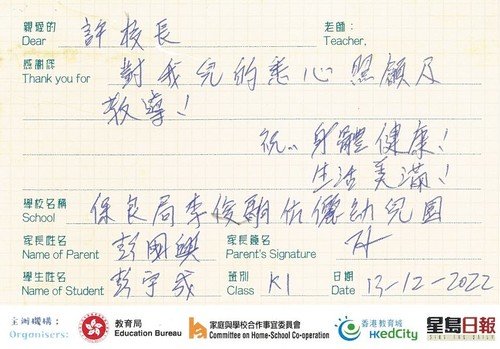 親愛的 許校長 老師：
Dear Teacher,
感謝您 對我兒的悉心照顧及
Thank you for
教導！
祝：身體健康！
生活美滿！
學校名稱 保良局李俊駒佑儷幼兒園
School
家長姓名 彭國興 家長簽名
Name of Parent Parent's Signature
學生姓名 彭宇 班別 K1 日期 13-12-2022
Name of Student Class Date
主辦機構： 教育局 家庭與學校合作事宜委員會 香港教育城 星島日報
Organisers: Education Bureau Committee on Home-School Co-operation HKedCity SING TAO DAILY